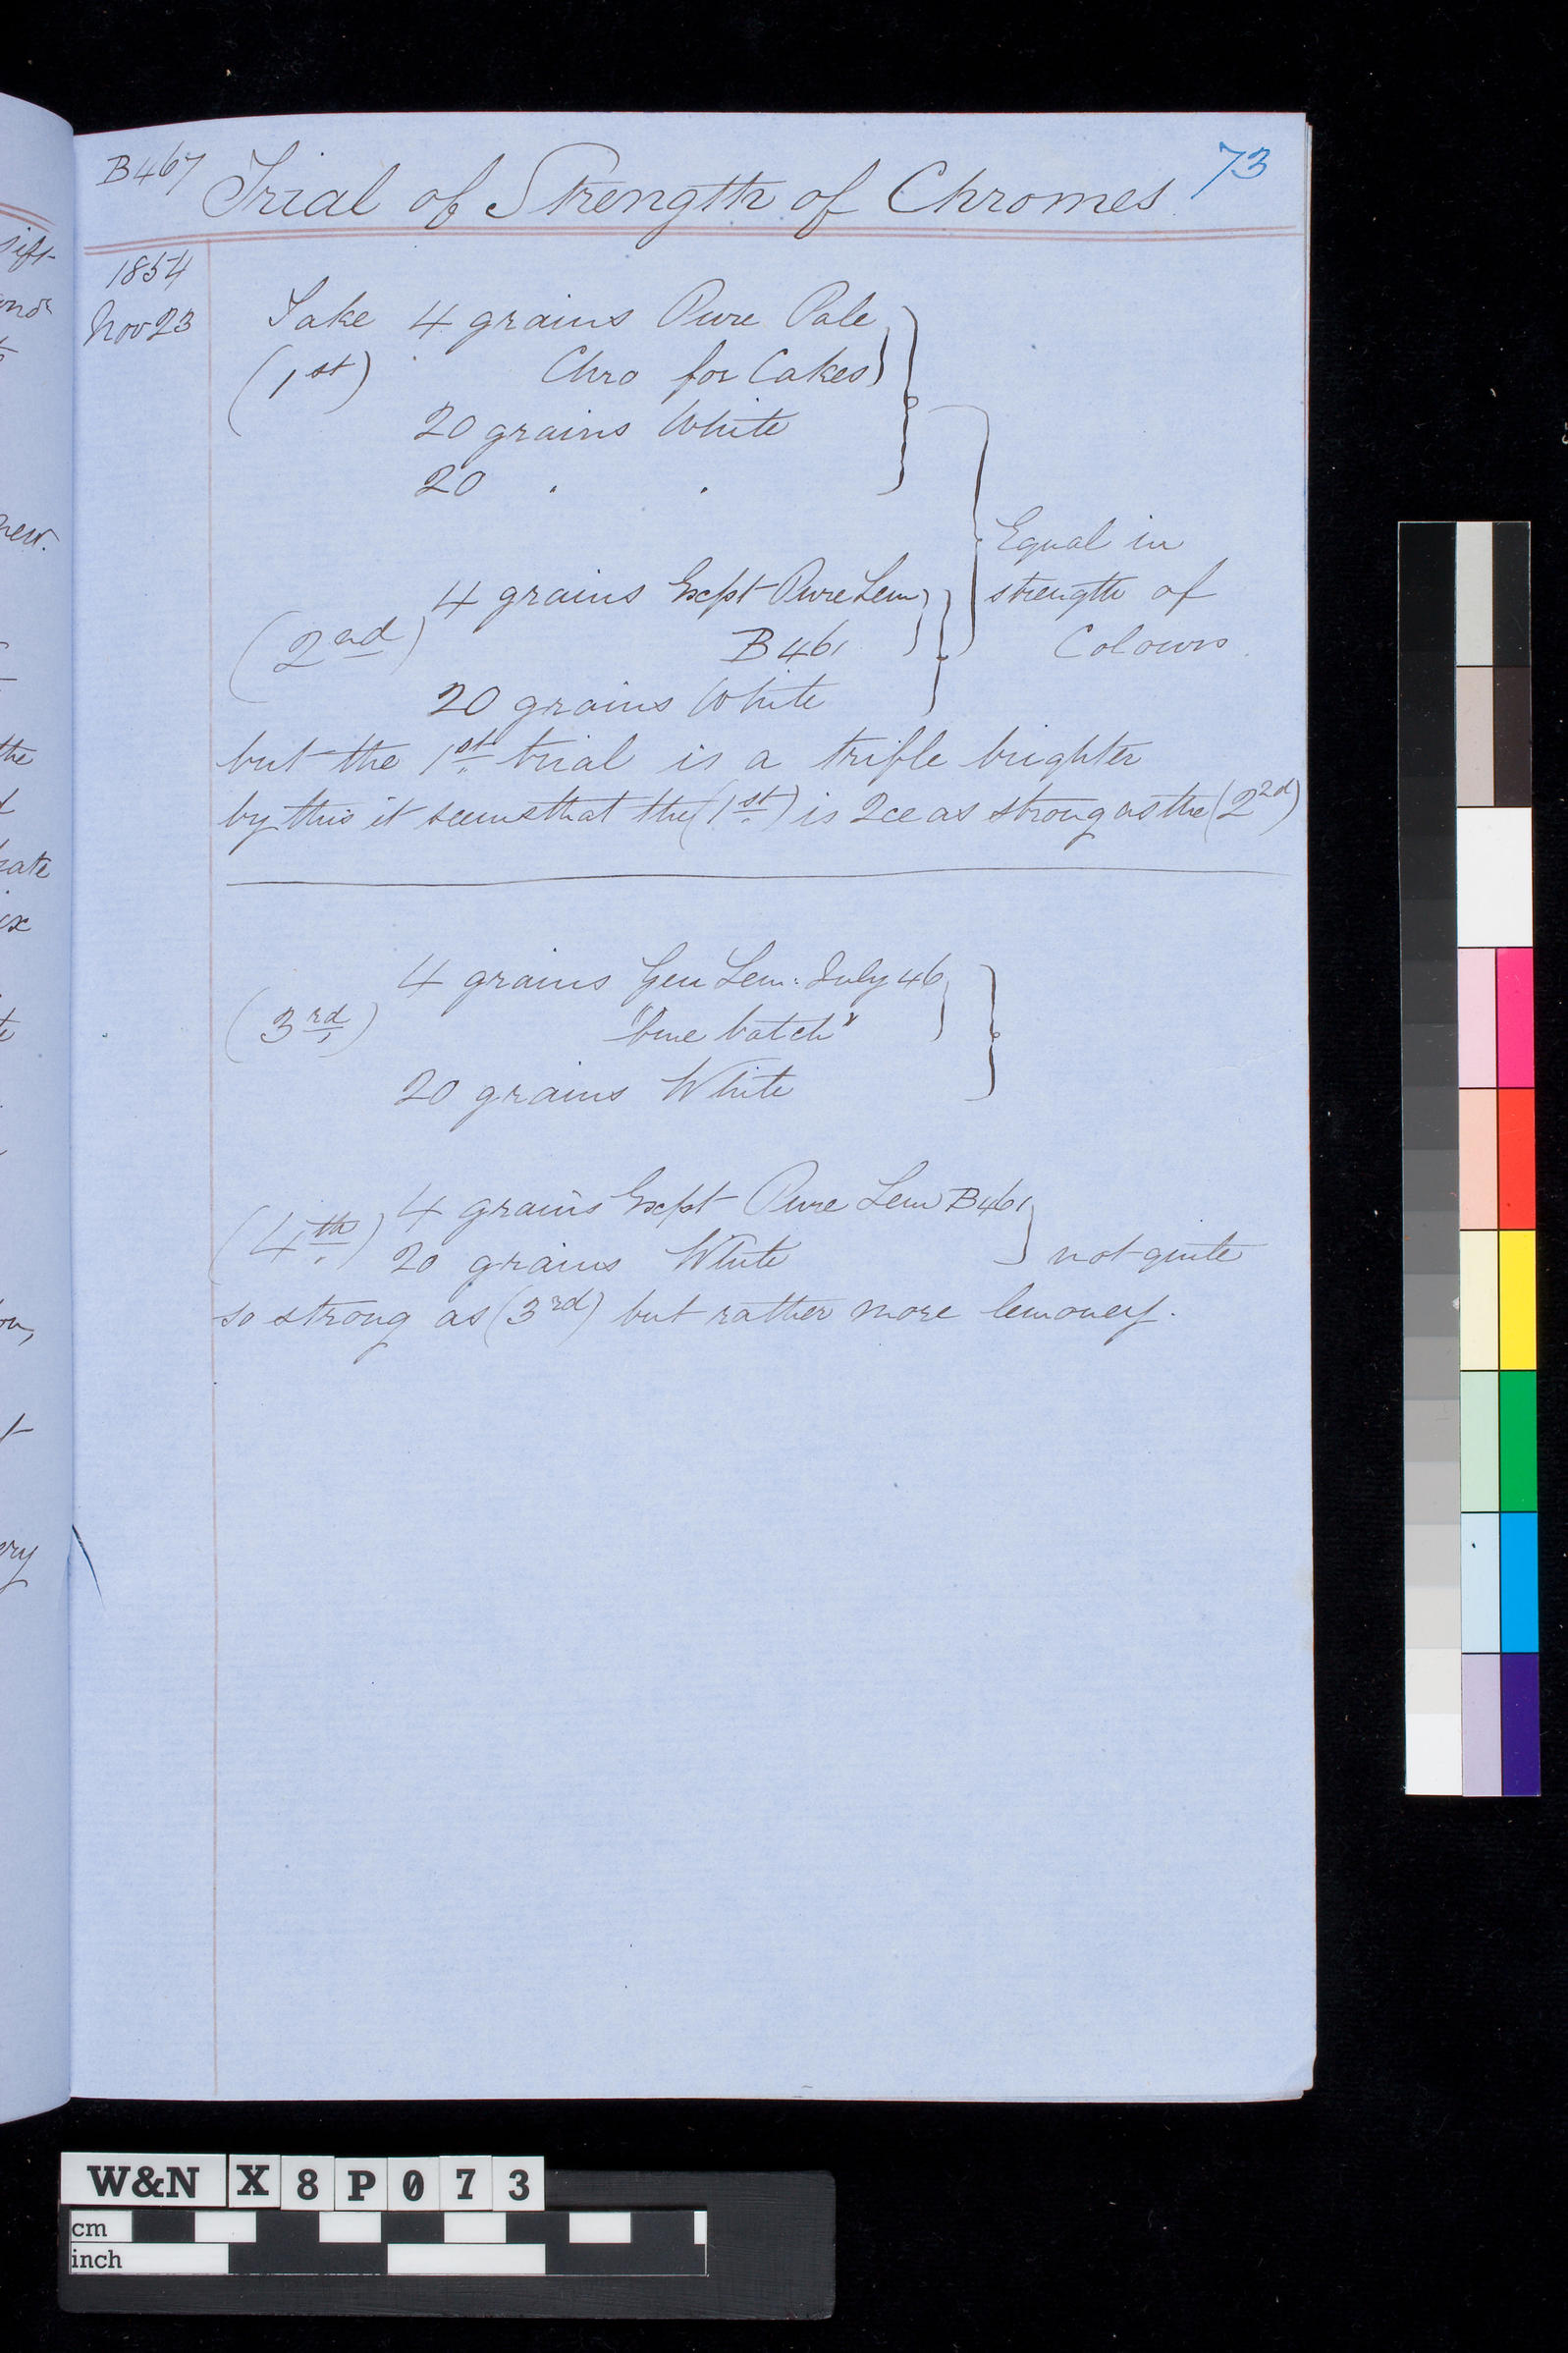 B467 Trial of Strength of Chromes 73
1854
Nov 23 Take 4 grains Pure Pale
(1st) Chro for Cakes
20 grains White
20 " "
Equal in
4 grains Expt Pure Lem strength of
(2nd) B461 Colours.
20 grains White
but the 1st trial is a trifle brighter
by this it seems that the (1st) is 2ce as strong as the (2nd)
4 grains Gen Lem: July 46
(3rd) "fine batch"
20 grains White
4 grains Expt Pure Lem B461
(4th) 20 grains White not quite
so strong as (3rd) but rather more lemoney.
W&N X8P073
cm
inch